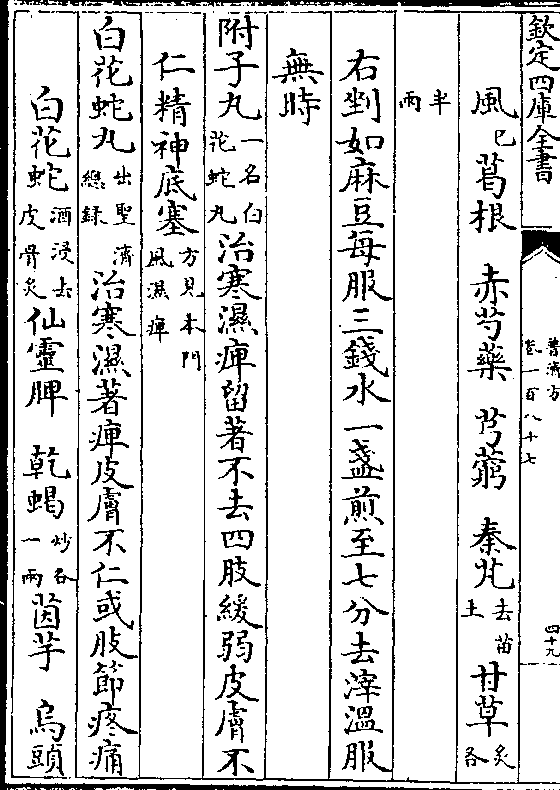 欽定四庫全書
普濟方
卷一百八十七
四十九
風巳 葛根 赤芍藥 芎藭 秦艽去苗土 甘草炙各
半兩
右剉如麻豆每服三錢水一盞煎至七分去滓溫服
無時
附子丸一名白花蛇丸 治寒濕痺留著不去四肢緩弱皮膚不
仁精神底塞方見本門風濕痺
白花蛇丸出聖濟總録 治寒濕著痺皮膚不仁或肢節疼痛
白花蛇酒浸去皮骨炙 仙靈脾 乾蝎炒各一兩 茵芋 烏頭